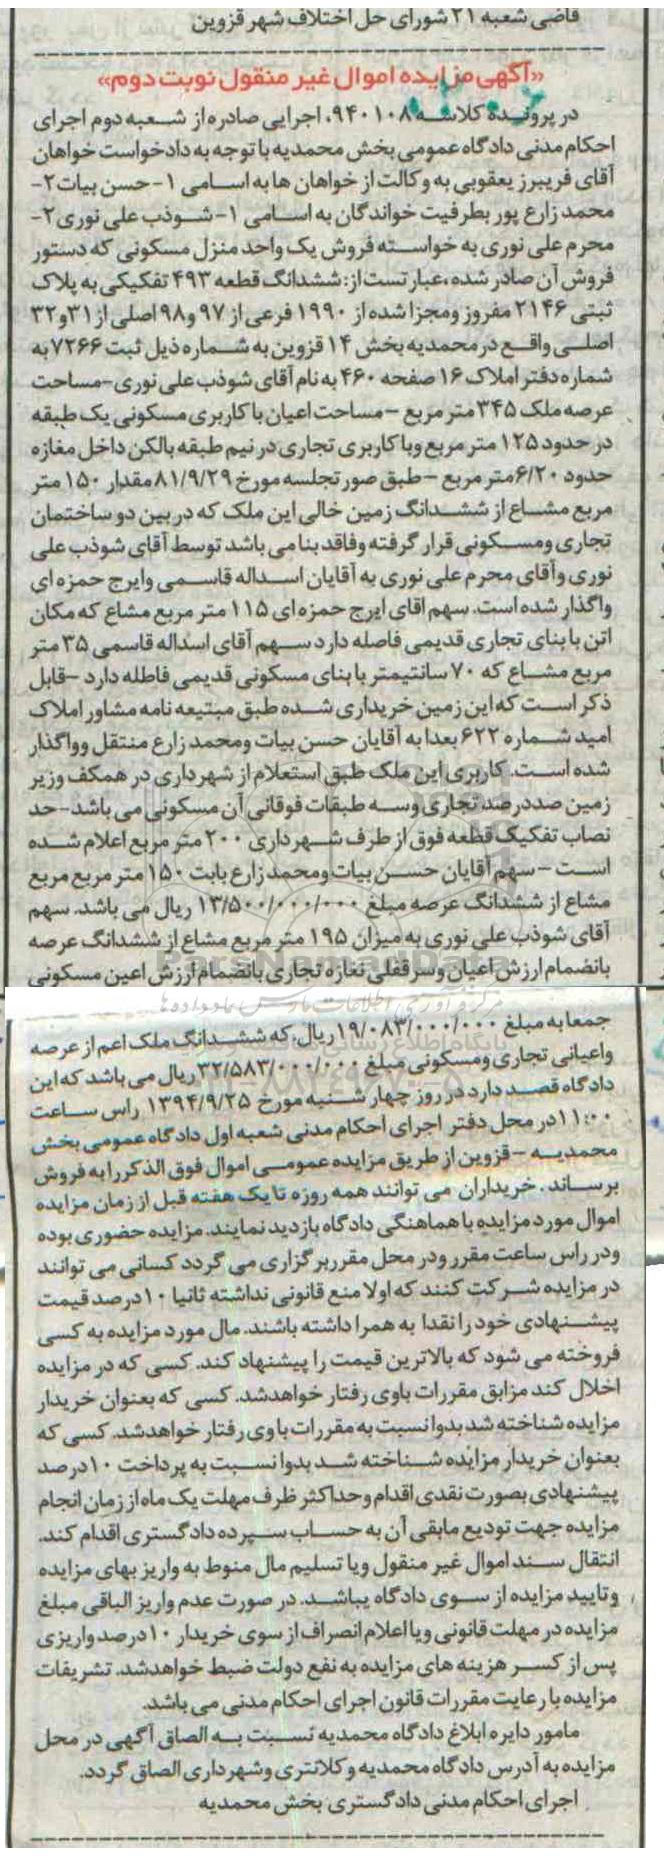 قاضی شعبه ۲۱ شورای حل اختلاف شهر قزوین
«آگهی مزایده اموال غیر منقول نوبت دوم»
در پرونده کلاسه ۹۴۰۱۰۸، اجرایی صادره از شعبه دوم اجرای
احکام مدنی دادگاه عمومی بخش محمدیه با توجه به دادخواست خواهان
آقای فریبرز یعقوبی به وکالت از خواهان ها به اسامی ۱- حسن بیات ۲-
محمد زارع پور بطرفیت خواندگان به اسامی ۱- شوذب علی نوری ۲-
محرم علی نوری به خواسته فروش یک واحد منزل مسکونی که دستور
فروش آن صادر شده، عبارتست از: ششدانگ قطعه ۴۹۳ تفکیکی به پلاک
ثبتی ۲۱۴۶ مفروز ومجزا شده از ۱۹۹۰ فرعی از ۹۷ و ۹۸ اصلی از ۳۱ و ۳۲
اصلی واقع در محمدیه بخش ۱۴ قزوین به شماره ذیل ثبت ۷۲۶۶ به
شماره دفتر املاک ۱۶ صفحه ۴۶۰ به نام آقای شوذب علی نوری-مساحت
عرصه ملک ۳۴۵ متر مربع - مساحت اعیان با کاربری مسکونی یک طبقه
در حدود ۱۲۵ متر مربع وبا کاربری تجاری در نیم طبقه بالکن داخل مغازه
حدود ۶/۲۰متر مربع - طبق صورتجلسه مورخ ۸۱/۹/۲۹ مقدار ۱۵۰ متر
مربع مشاع از ششدانگ زمین خالی این ملک که در بین دو ساختمان
تجاری ومسکونی قرار گرفته وفاقد بنا می باشد توسط آقای شوذب علی
نوری وآقای محرم علی نوری به آقایان اسداله قاسمی وایرج حمزه ای
واگذار شده است. سهم اقای ایرج حمزه ای ۱۱۵ متر مربع مشاع که مکان
اتن با بنای تجاری قدیمی فاصله دارد سهم آقای اسداله قاسمی ۳۵ متر
مربع مشاع که ۷۰ سانتیمتر با بنای مسکونی قدیمی فاطله دارد -قابل
ذکر است که این زمین خریداری شده طبق مبتیعه نامه مشاور املاک
امید شماره ۶۲۲ بعدا به آقایان حسن بیات ومحمد زارع منتقل وواگذار
شده است. کاربری این ملک طبق استعلام از شهرداری در همکف وزیر
زمین صددرصد تجاری وسه طبقات فوقانی آن مسکونی می باشد-حد
نصاب تفکیک قطعه فوق از طرف شهرداری ۲۰۰ متر مربع اعلام شده
است - سهم آقایان حسن بیات ومحمد زارع بابت ۱۵۰ متر مربع مربع
مشاع از ششدانگ عرصه مبلغ ۱۳/۵۰۰/۰۰۰/۰۰۰ ریال می باشد. سهم
آقای شوذب علی نوری به میزان ۱۹۵ متر مربع مشاع از ششدانگ عرصه
بانضمام ارزش اعیان وسرقفلی نغازه تجاری بانضمام ارزش اعین مسکونی
ParsNamadData
مرکز فرآوری اطلاعات پارس نماد داده ها
جمعا به مبلغ ۱۹/۰۸۳/۰۰۰/۰۰۰ ریال، که ششدانگ ملک اعم از عرصه
پایگاه اطلاع رسانی
واعیانی تجاری ومسکونی مبلغ ۳۲/۵۸۳/۰۰۰/۰۰۰ ریال می باشد که این
۰۲۱-۸۸۳۴۹۶۷۰-۵
دادگاه قصد دارد در روز چهار شنبه مورخ ۱۳۹۴/۹/۲۵ راس ساعت
۱۱:۰۰ در محل دفتر اجرای احکام مدنی شعبه اول دادگاه عمومی بخش
محمدیه - قزوین از طریق مزایده عمومی اموال فوق الذکر را به فروش
برساند. خریداران می توانند همه روزه تا یک هفته قبل از زمان مزایده
اموال مورد مزایده با هماهنگی دادگاه بازدید نمایند. مزایده حضوری بوده
ودر راس ساعت مقرر ودر محل مقرر برگزاری می گردد کسانی می توانند
در مزایده شرکت کنند که اولا منع قانونی نداشته ثانیا ۱۰درصد قیمت
پیشنهادی خود را نقدا به همرا داشته باشند. مال مورد مزایده به کسی
فروخته می شود که بالاترین قیمت را پیشنهاد کند. کسی که در مزایده
اخلال کند مزابق مقررات باوی رفتار خواهدشد. کسی که بعنوان خریدار
مزایده شناخته شد بدوا نسبت به مقررات باوی رفتار خواهدشد. کسی که
بعنوان خریدار مزایده شناخته شد بدوا نسبت به پرداخت ۱۰درصد
پیشنهادی بصورت نقدی اقدام وحداکثر ظرف مهلت یک ماه از زمان انجام
مزایده جهت تودیع مابقی آن به حساب سپرده دادگستری اقدام کند.
انتقال سند اموال غیر منقول ویا تسلیم مال منوط به واریز بهای مزایده
وتایید مزایده از سوی دادگاه یباشد. در صورت عدم واریز الباقی مبلغ
مزایده در مهلت قانونی ویا اعلام انصراف از سوی خریدار ۱۰درصد واریزی
پس از کسر هزینه های مزایده به نفع دولت ضبط خواهدشد. تشریفات
مزایده با رعایت مقررات قانون اجرای احکام مدنی می باشد.
مامور دایره ابلاغ دادگاه محمدیه نسبت به الصاق آگهی در محل
مزایده به آدرس دادگاه محمدیه وکلانتری وشهرداری الصاق گردد.
اجرای احکام مدنی دادگستری بخش محمدیه